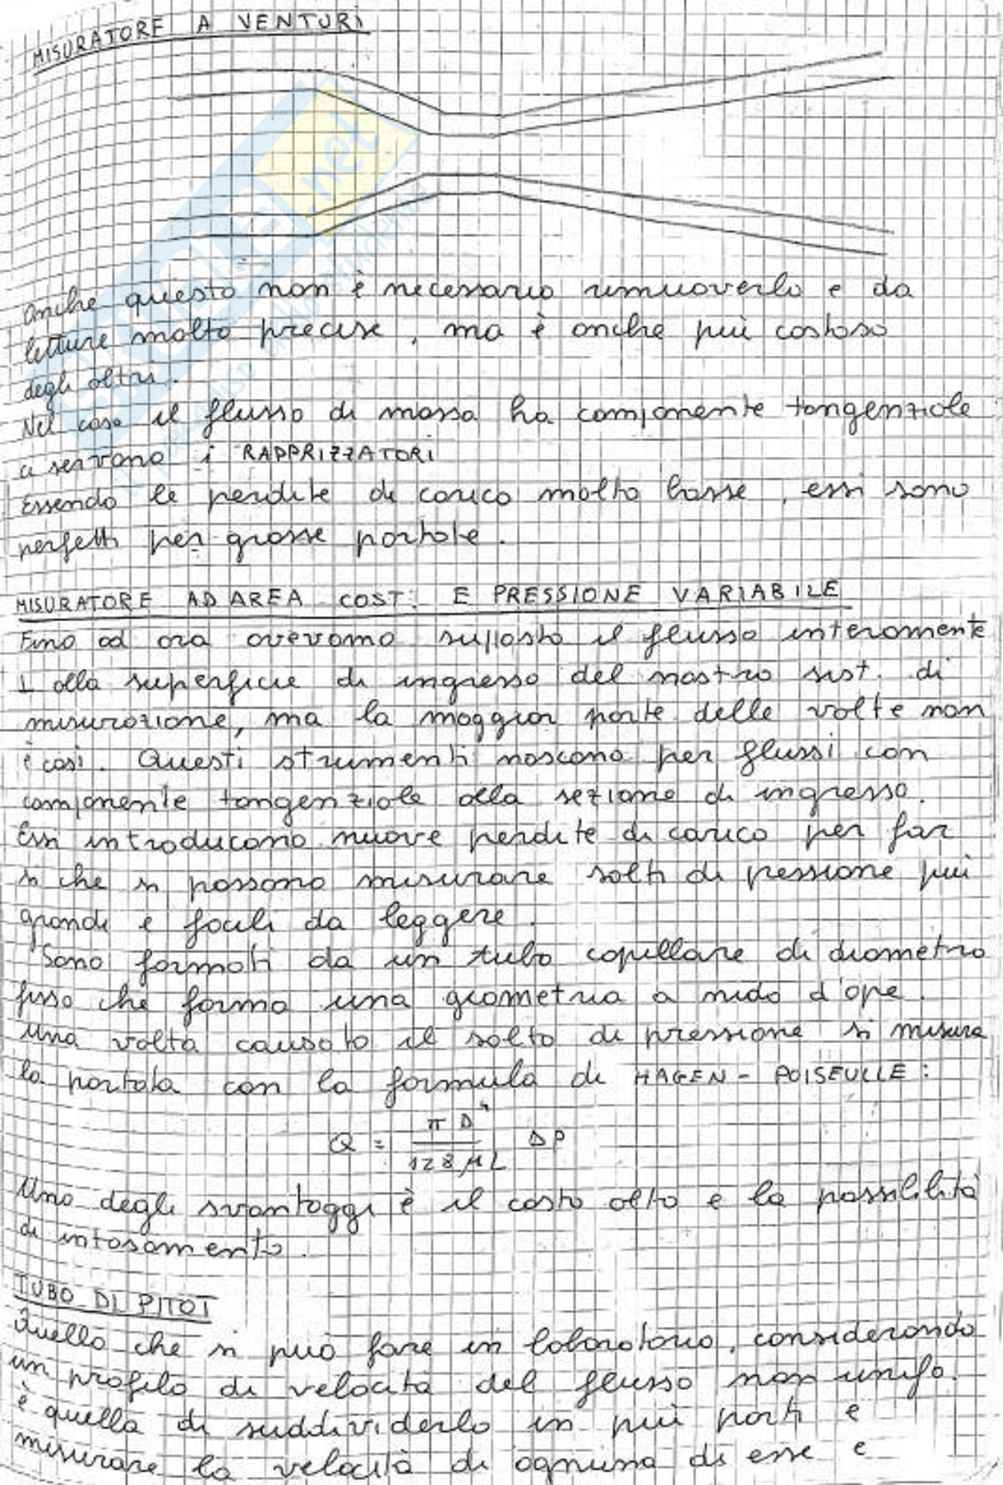 MISURATORE A VENTURI
Anche questo non è necessario rimuoverlo e da
letture molto precise, ma è anche più costoso
degli altri.
Nel caso il flusso di massa ha componente tangenziale
ci servono i RAPPRIZZATORI
Essendo le perdite di carico molto basse, essi sono
perfetti per grosse portate.
MISURATORE AD AREA COST. E PRESSIONE VARIABILE
Fino ad ora avevamo supposto il flusso interamente
⊥ alla superficie di ingresso del nostro sist. di
misurazione, ma la maggior parte delle volte non
è così. Questi strumenti nascono per flussi con
componente tangenziale alla sezione di ingresso.
Essi introducono nuove perdite di carico per far
si che si possono misurare salti di pessione più
grandi e facili da leggere.
Sono formati da un tubo capillare di diametro
fisso che forma una geometria a nido d'ape.
Una volta causato il salto di pressione si misura
la portata con la formula di HAGEN - POISEULLE:
Q = π D⁴ / 128 μ L ΔP
Uno degli svantaggi è il costo alto e la possibilità
di intasamento.
TUBO DI PITOT
Quello che si può fare in laboratorio, considerando
un profilo di velocità del flusso non unifo.
è quello di suddividerlo in più parti e
misurare la velocità di ognuna di esse e
net